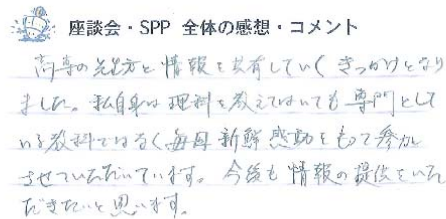 座談会・SPP 全体の感想・コメント
高専の先生方と情報を共有していくきっかけとなり
ました。私自身は理科を教えてはいても専門として
いる教科ではなく毎回新鮮感動をもって参加
させていただいています。今後も情報の提供をいた
だきたいと思います。